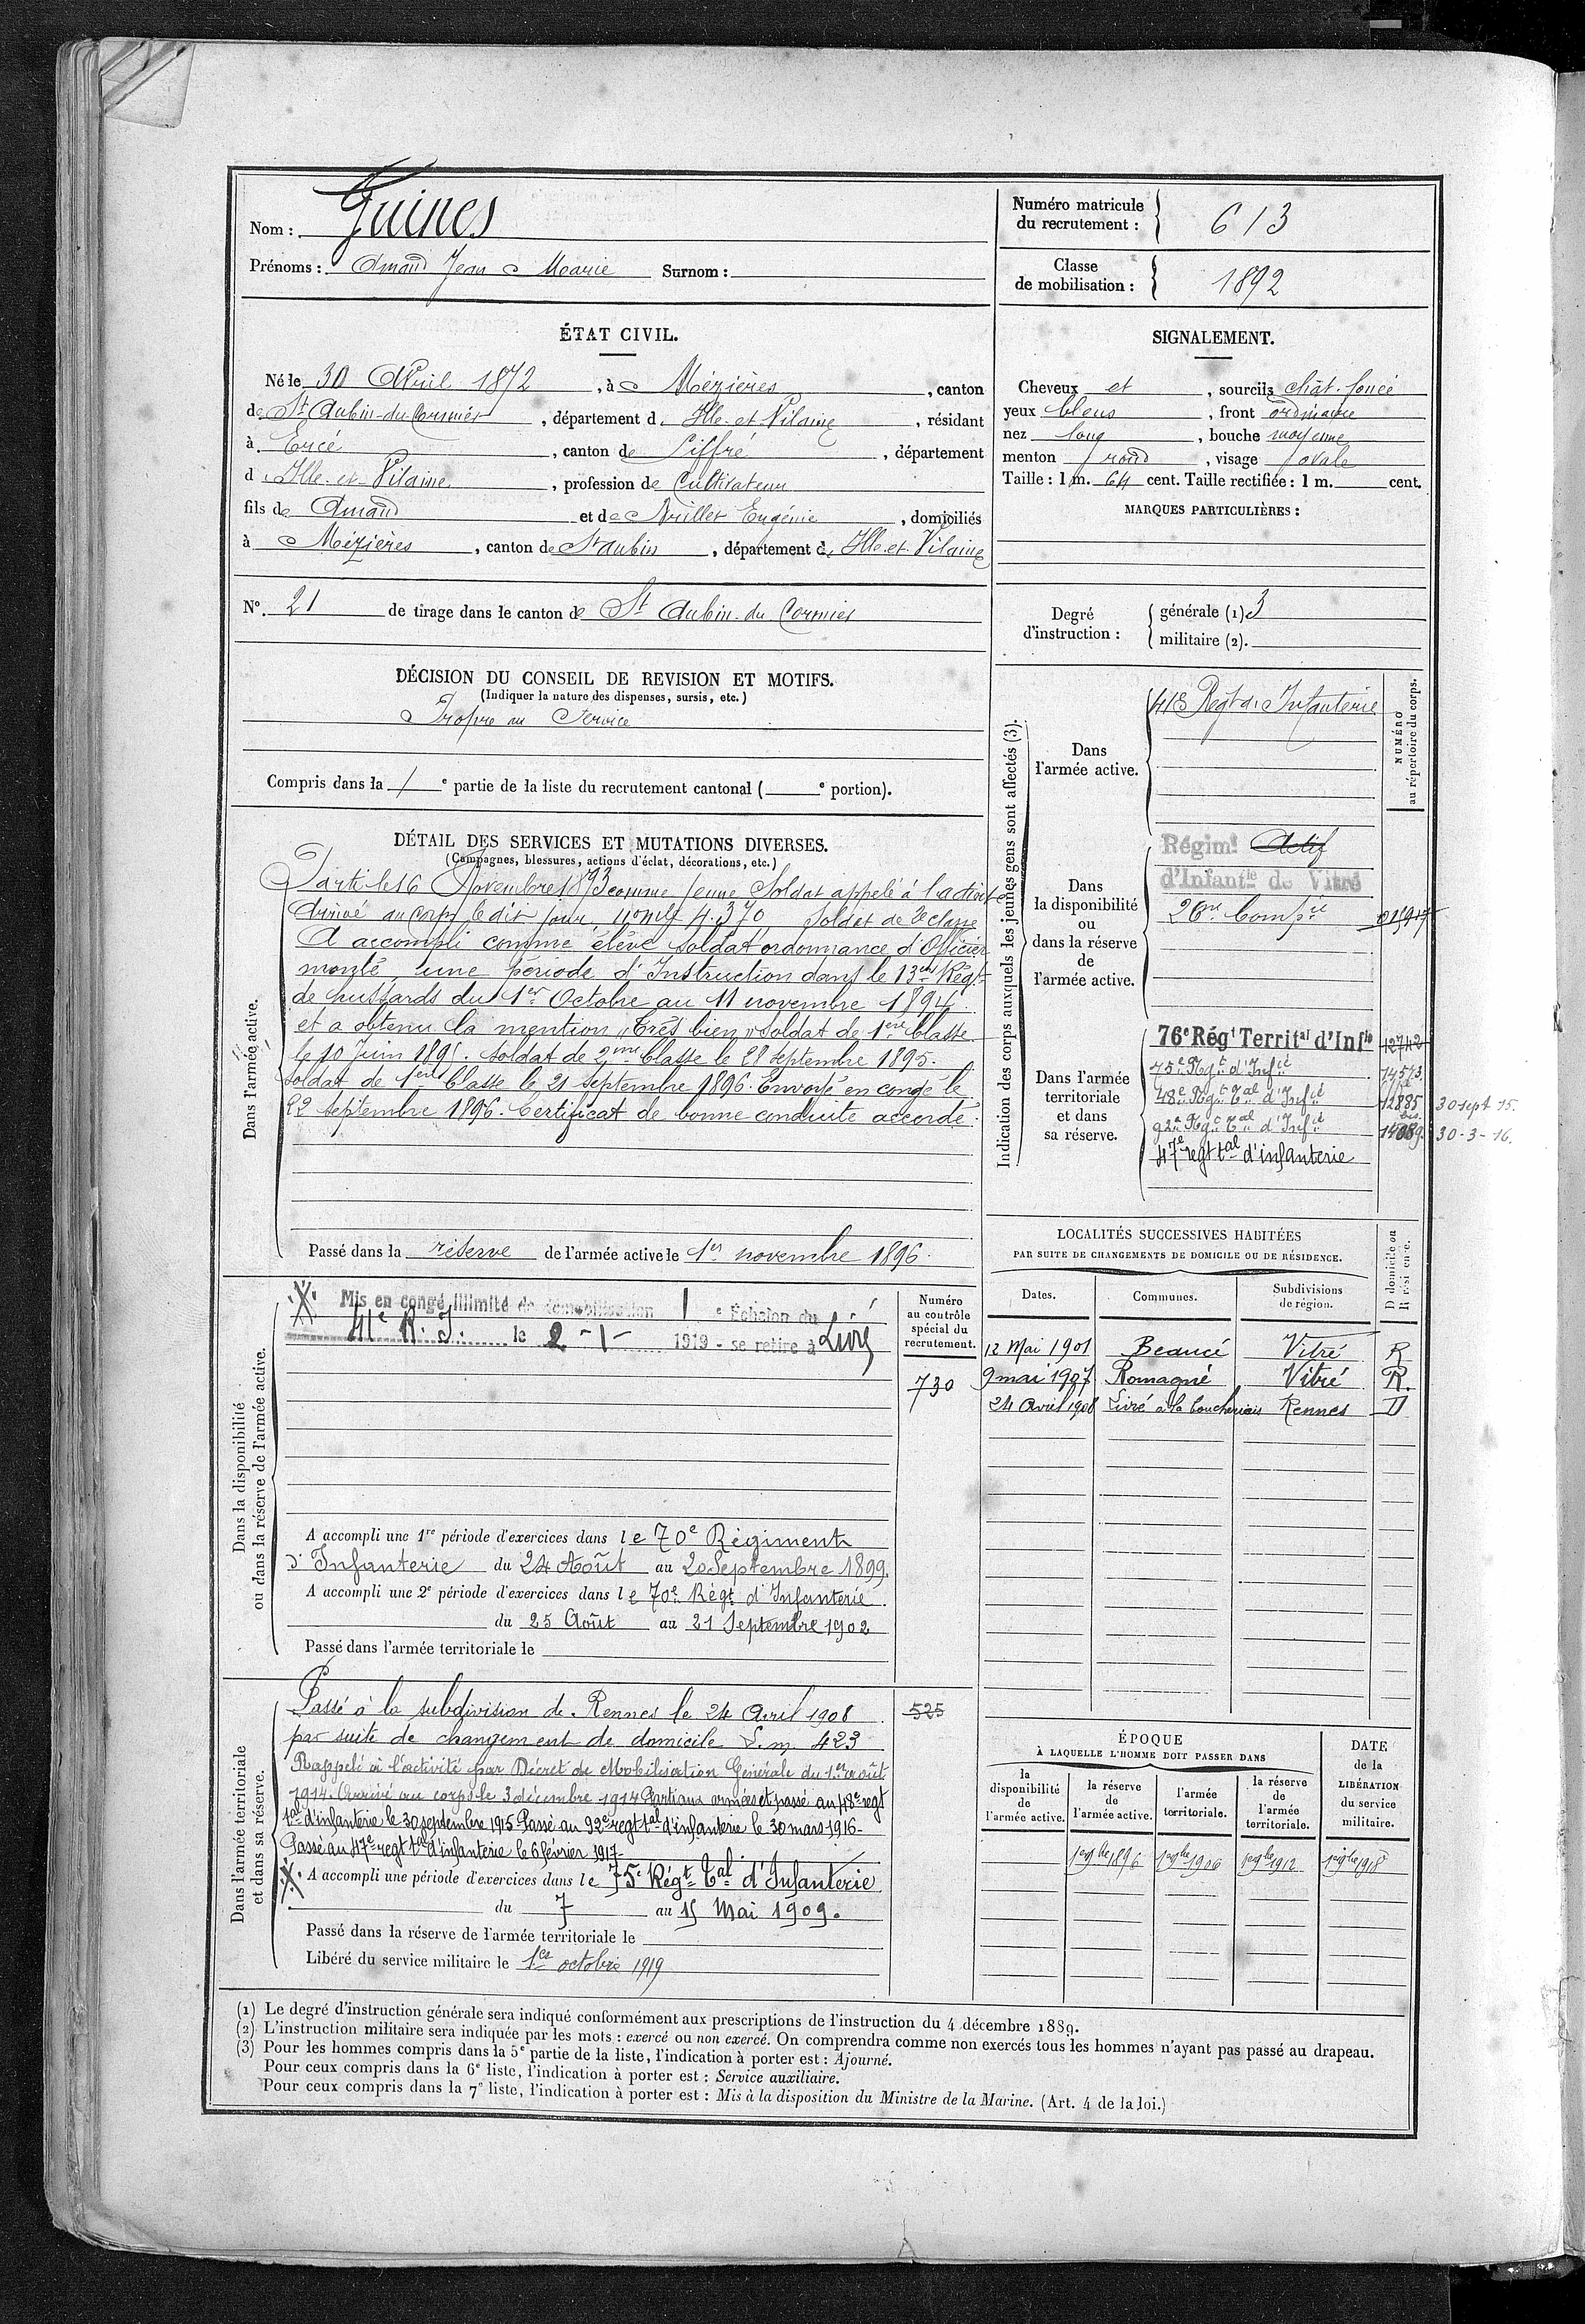 Nom : Guines
Prénoms : Amand Jean Marie Surnom :
Numéro matricule du recrutement : 613
Classe de mobilisation : 1892
ÉTAT CIVIL.
Né le 30 Avril 1872, à Mézières, canton
de St Aubin-du-Cormier, département d Ille-et-Vilaine, résidant
à Ercé, canton de Liffré, département
d Ille-et-Vilaine, profession de Cultivateur
fils de Amand et de Nuillet Eugénie, domiciliés
à Mézières, canton de St Aubin, département d Ille-et-Vilaine
N° 21 de tirage dans le canton de St Aubin-du-Cormier
SIGNALEMENT.
Cheveux et, sourcils chât. foncé
yeux bleus, front ordinaire
nez long, bouche moyenne
menton rond, visage ovale
Taille : 1 m. 64 cent. Taille rectifiée : 1 m. cent.
MARQUES PARTICULIÈRES :
Degré d'instruction : générale (1) 3
militaire (2).
DÉCISION DU CONSEIL DE REVISION ET MOTIFS.
(Indiquer la nature des dispenses, sursis, etc.)
Propre au Service
Compris dans la 1e partie de la liste du recrutement cantonal ( e portion).
DÉTAIL DES SERVICES ET MUTATIONS DIVERSES.
(Campagnes, blessures, actions d'éclat, décorations, etc.)
Dans l'armée active.
Parti le 16 Novembre 1893 comme jeune Soldat appelé à l'activité
Arrivé au corps le dit jour, n° mle 4.370 soldat de 2e classe
A accompli comme élève soldat ordonnance d'Officier
monté, une période d'Instruction dans le 13me Régt
de hussards du 1er Octobre au 11 novembre 1894
et a obtenu la mention "Très bien" Soldat de 1ère Classe
le 10 Juin 1895. Soldat de 2me Classe le 28 septembre 1895.
Soldat de 1ère Classe le 21 septembre 1896. Envoyé en congé le
22 septembre 1896. Certificat de bonne conduite accordé.
Passé dans la réserve de l'armée active le 1er novembre 1896.
Indication des corps auxquels les jeunes gens sont affectés (3).
NUMÉRO au répertoire du corps.
Dans l'armée active.
41e Régt d'Infanterie
Dans la disponibilité ou dans la réserve de l'armée active.
Régimt Actif
d'Infantie de Vitré
26me Compie
Dans l'armée territoriale et dans sa réserve.
76e Régt Territal d'Infie 12742
75e Rgt d'Infie 14573
48e Rgt Tal d'Infie 12885 30 sept 15.
92e Rgt Tal d'Infie 14089 30-3-16.
47e regt tal d'infanterie
LOCALITÉS SUCCESSIVES HABITÉES
PAR SUITE DE CHANGEMENTS DE DOMICILE OU DE RÉSIDENCE.
Dates. Communes. Subdivisions de région. D domicile ou R résidence.
12 Mai 1901 Beaucé Vitré R
9 mai 1907 Romagné Vitré R.
24 Avril 1908 Livré à la Rennes D
Dans la disponibilité ou dans la réserve de l'armée active.
Mis en congé illimité de démobilisation 1e Échelon du
41e R. I. le 2-1- 1919 - se retire à Livré
Numéro au contrôle spécial du recrutement.
730
A accompli une 1re période d'exercices dans le 70e Régiment
d'Infanterie du 24 Août au 20 Septembre 1899.
A accompli une 2e période d'exercices dans le 70e Régt d'Infanterie
du 25 Août au 21 Septembre 1902
Passé dans l'armée territoriale le
Dans l'armée territoriale et dans sa réserve.
Passé à la subdivision de Rennes le 24 Avril 1908 525
par suite de changement de domicile L. m. 423
Rappelé à l'activité par Décret de Mobilisation Générale du 1er août
1914. Arrivé au corps le 3 décembre 1914 Parti aux armées et passé au 48e regt
tal d'infanterie le 30 septembre 1915 Passé au 92e regt tal d'infanterie le 30 mars 1916-
Passé au 47e regt tal d'infanterie le 6 février 1917-
A accompli une période d'exercices dans le 75e Régt Tal d'Infanterie
du 7 au 15 Mai 1909.
Passé dans la réserve de l'armée territoriale le
Libéré du service militaire le 1er octobre 1919
ÉPOQUE
À LAQUELLE L'HOMME DOIT PASSER DANS
la disponibilité de l'armée active.
la réserve de l'armée active.
l'armée territoriale.
la réserve de l'armée territoriale.
DATE de la LIBÉRATION du service militaire.
1er 9bre 1896 1er 9bre 1906 1er 9bre 1912 1er 9bre 1918
(1) Le degré d'instruction générale sera indiqué conformément aux prescriptions de l'instruction du 4 décembre 1889.
(2) L'instruction militaire sera indiquée par les mots : exercé ou non exercé. On comprendra comme non exercés tous les hommes n'ayant pas passé au drapeau.
(3) Pour les hommes compris dans la 5e partie de la liste, l'indication à porter est : Ajourné.
Pour ceux compris dans la 6e liste, l'indication à porter est : Service auxiliaire.
Pour ceux compris dans la 7e liste, l'indication à porter est : Mis à la disposition du Ministre de la Marine. (Art. 4 de la loi.)